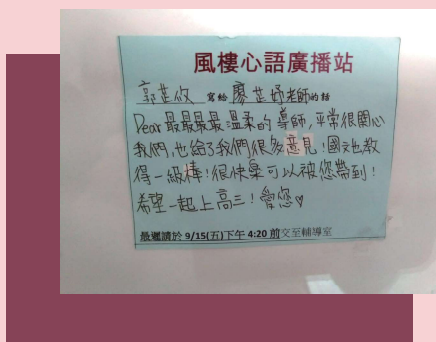 風樓心語廣播站
郭芷攸 寫給 廖芷妤老師的話
Dear 最最最最溫柔的導師,平常很關心
我們,也給了我們很多意見!國文也教
得一級棒!很快樂可以被您帶到!
希望一起上高三!愛您♡
最遲請於 9/15(五)下午 4:20 前交至輔導室